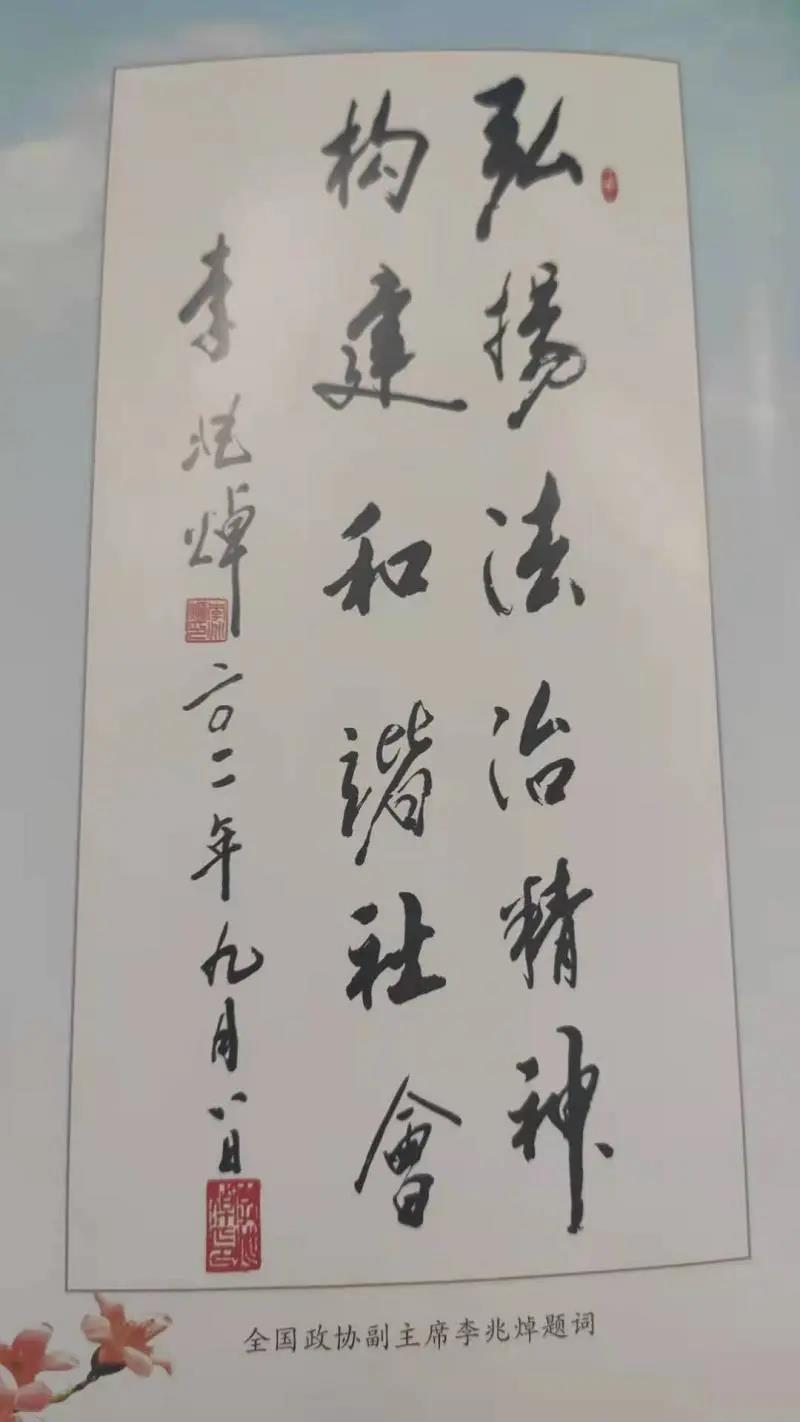 弘揚法治精神
构建和諧社會
李兆焯
二〇一二年九月八日
全国政协副主席李兆焯题词